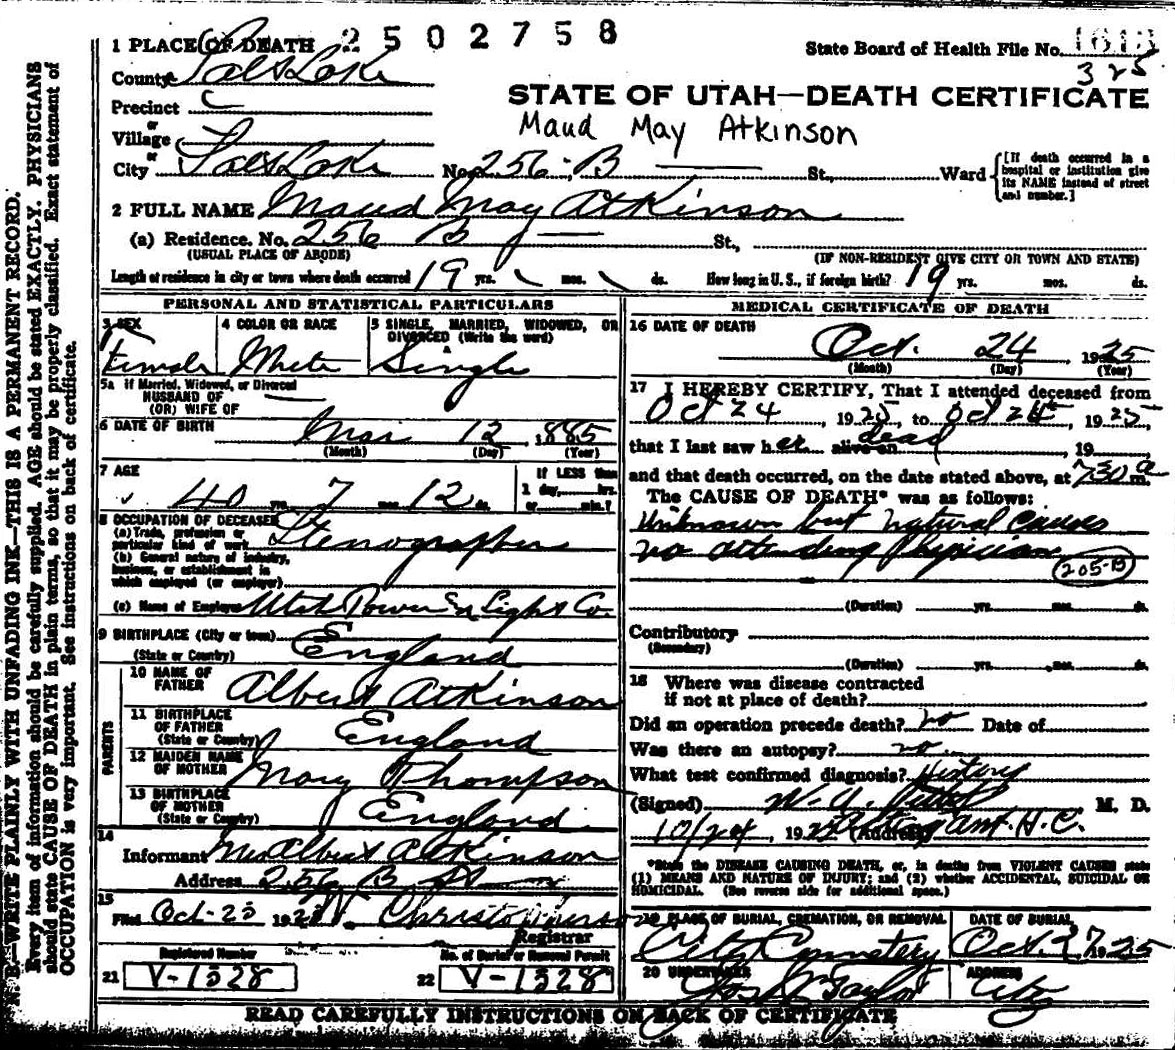 2502758
State Board of Health File No. 1613
325
1 PLACE OF DEATH
County Salt Lake
STATE OF UTAH—DEATH CERTIFICATE
Precinct
Maud May Atkinson
or
Village
or
City Salt Lake No. 256 B St., Ward
[If death occurred in a hospital or institution give its NAME instead of street and number.]
2 FULL NAME Maud May Atkinson
(a) Residence. No. 256 B St.,
(USUAL PLACE OF ABODE) (IF NON-RESIDENT GIVE CITY OR TOWN AND STATE)
Length of residence in city or town where death occurred 19 yrs. mos. ds. How long in U.S., if foreign birth? 19 yrs. mos. ds.
PERSONAL AND STATISTICAL PARTICULARS
3 SEX
Female
4 COLOR OR RACE
White
5 SINGLE, MARRIED, WIDOWED, OR
DIVORCED (Write the word)
Single
5a If Married, Widowed, or Divorced
HUSBAND OF
(OR) WIFE OF
6 DATE OF BIRTH Mar 12 1885
(Month) (Day) (Year)
7 AGE
40 yrs. 7 mos. 12 ds.
If LESS than
1 day, hrs.
or min.?
8 OCCUPATION OF DECEASED
(a) Trade, profession or
particular kind of work Stenographer
(b) General nature of industry,
business, or establishment in
which employed (or employer)
(c) Name of Employer Utah Power & Light Co.
9 BIRTHPLACE (City or town)
(State or Country) England
PARENTS
10 NAME OF
FATHER Albert Atkinson
11 BIRTHPLACE
OF FATHER
(State or Country) England
12 MAIDEN NAME
OF MOTHER Mary Thompson
13 BIRTHPLACE
OF MOTHER
(State or Country) England
14
Informant Mrs Albert Atkinson
Address 256 B St
15
Filed Oct-25 192 Christopherson
Registrar
Registered Number No. of Burial or Removal Permit
21 V-1328 22 V-1328
MEDICAL CERTIFICATE OF DEATH
16 DATE OF DEATH
Oct. 24 1925
(Month) (Day) (Year)
17 I HEREBY CERTIFY, That I attended deceased from
Oct 24, 1925, to Oct 24, 1925,
that I last saw her alive on dead, 19
and that death occurred, on the date stated above, at 730 a m.
The CAUSE OF DEATH* was as follows:
Unknown but natural causes
no attending Physician
205-B
(Duration) yrs. mos. ds.
Contributory
(Secondary)
(Duration) yrs. mos. ds.
18 Where was disease contracted
if not at place of death?
Did an operation precede death? no Date of
Was there an autopsy? no
What test confirmed diagnosis? History
(Signed) M. D.
10/24, 192 (Address) H.C.
*State the DISEASE CAUSING DEATH, or, in deaths from VIOLENT CAUSES state
(1) MEANS AND NATURE OF INJURY; and (2) whether ACCIDENTAL, SUICIDAL OR
HOMICIDAL. (See reverse side for additional space.)
19 PLACE OF BURIAL, CREMATION, OR REMOVAL
City Cemetery
DATE OF BURIAL
Oct. 27 1925
20 UNDERTAKER
Jos. Wm Taylor
ADDRESS
City
READ CAREFULLY INSTRUCTIONS ON BACK OF CERTIFICATE
N. B.—WRITE PLAINLY WITH UNFADING INK—THIS IS A PERMANENT RECORD.
Every item of information should be carefully supplied. AGE should be stated EXACTLY. PHYSICIANS
should state CAUSE OF DEATH in plain terms, so that it may be properly classified. Exact statement of
OCCUPATION is very important. See instructions on back of certificate.